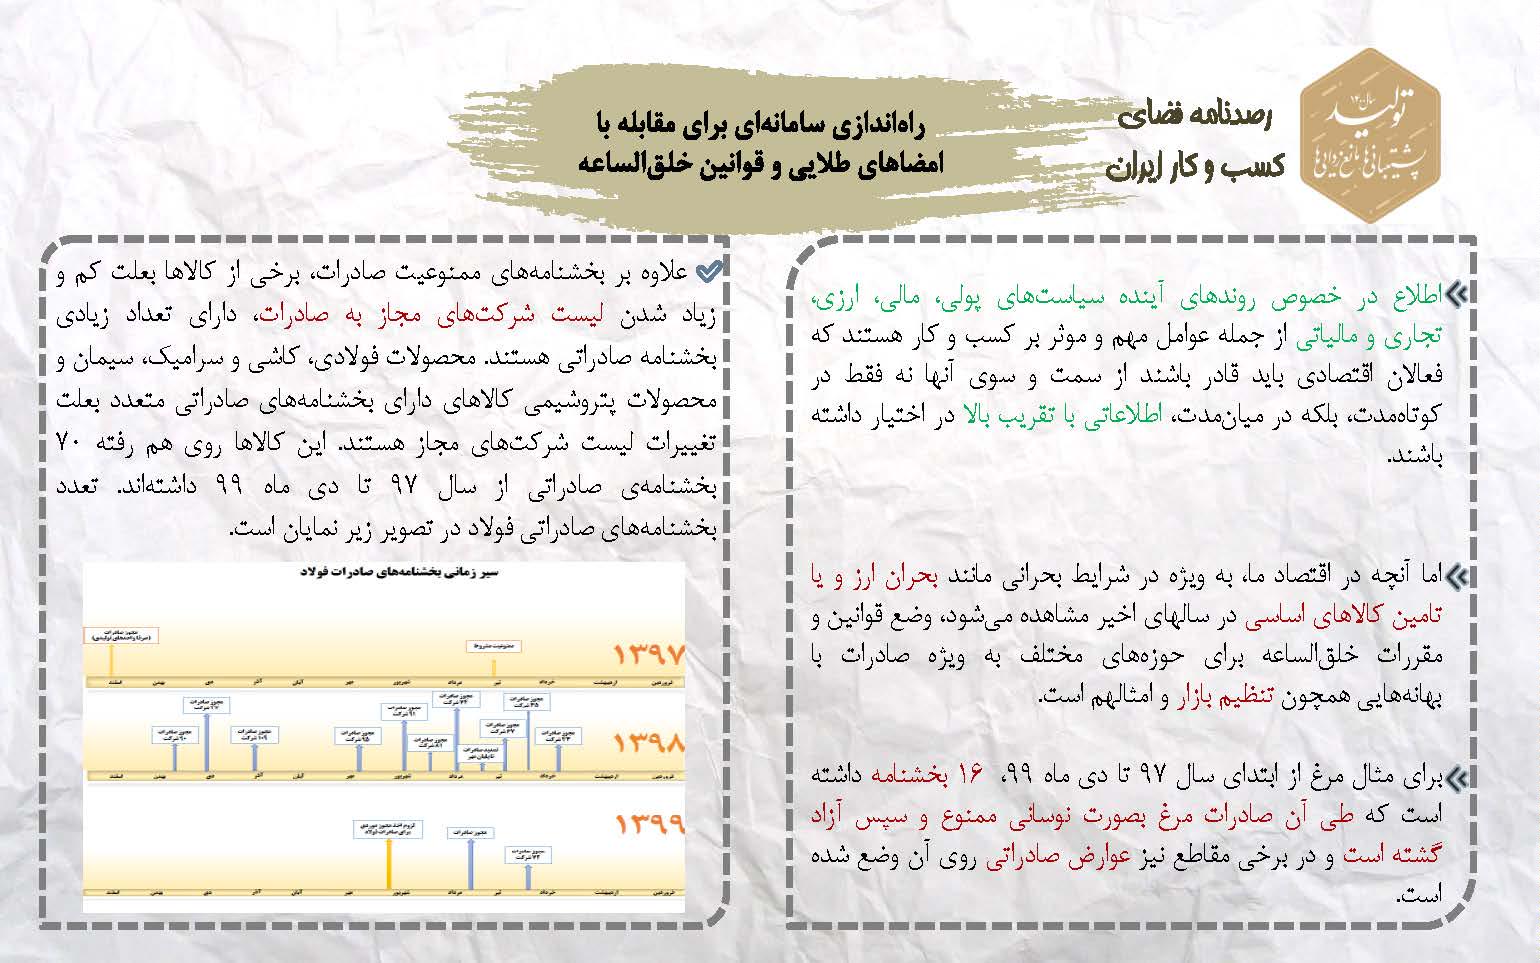 سال ۱۴۰۰
تولید
پشتیبانی‌ها مانع‌زدایی‌ها
رصدنامه فضای
کسب و کار ایران
راه‌اندازی سامانه‌ای برای مقابله با
امضاهای طلایی و قوانین خلق‌الساعه
اطلاع در خصوص روندهای آینده سیاست‌های پولی، مالی، ارزی،
تجاری و مالیاتی از جمله عوامل مهم و موثر بر کسب و کار هستند که
فعالان اقتصادی باید قادر باشند از سمت و سوی آنها نه فقط در
کوتاه‌مدت، بلکه در میان‌مدت، اطلاعاتی با تقریب بالا در اختیار داشته
باشند.
اما آنچه در اقتصاد ما، به ویژه در شرایط بحرانی مانند بحران ارز و یا
تامین کالاهای اساسی در سالهای اخیر مشاهده می‌شود، وضع قوانین و
مقررات خلق‌الساعه برای حوزه‌های مختلف به ویژه صادرات با
بهانه‌هایی همچون تنظیم بازار و امثالهم است.
برای مثال مرغ از ابتدای سال ۹۷ تا دی ماه ۹۹، ۱۶ بخشنامه داشته
است که طی آن صادرات مرغ بصورت نوسانی ممنوع و سپس آزاد
گشته است و در برخی مقاطع نیز عوارض صادراتی روی آن وضع شده
است.
علاوه بر بخشنامه‌های ممنوعیت صادرات، برخی از کالاها بعلت کم و
زیاد شدن لیست شرکت‌های مجاز به صادرات، دارای تعداد زیادی
بخشنامه صادراتی هستند. محصولات فولادی، کاشی و سرامیک، سیمان و
محصولات پتروشیمی کالاهای دارای بخشنامه‌های صادراتی متعدد بعلت
تغییرات لیست شرکت‌های مجاز هستند. این کالاها روی هم رفته ۷۰
بخشنامه‌ی صادراتی از سال ۹۷ تا دی ماه ۹۹ داشته‌اند. تعدد
بخشنامه‌های صادراتی فولاد در تصویر زیر نمایان است.
سیر زمانی بخشنامه‌های صادرات فولاد
۱۳۹۷
ممنوعیت مشروط
مجوز صادرات
(صرفا واحدهای تولیدی)
فروردین اردیبهشت خرداد تیر مرداد شهریور مهر آبان آذر دی بهمن اسفند
۱۳۹۸
مجوز صادرات
۲۳ شرکت
مجوز صادرات
۳۵ شرکت
مجوز صادرات
۳۷ شرکت
تمدید صادرات
تا پایان مهر
مجوز صادرات
۷۴ شرکت
مجوز صادرات
۸۱ شرکت
مجوز صادرات
۹۱ شرکت
مجوز صادرات
۹۵ شرکت
مجوز صادرات
۱۰۹ شرکت
مجوز صادرات
مجوز صادرات
۹۰ شرکت
فروردین اردیبهشت خرداد تیر مرداد شهریور مهر آبان آذر دی بهمن اسفند
۱۳۹۹
مجوز صادرات
۷۴ شرکت
مجوز صادرات
لزوم اخذ مجوز موردی
برای صادرات فولاد
فروردین اردیبهشت خرداد تیر مرداد شهریور مهر آبان آذر دی بهمن اسفند